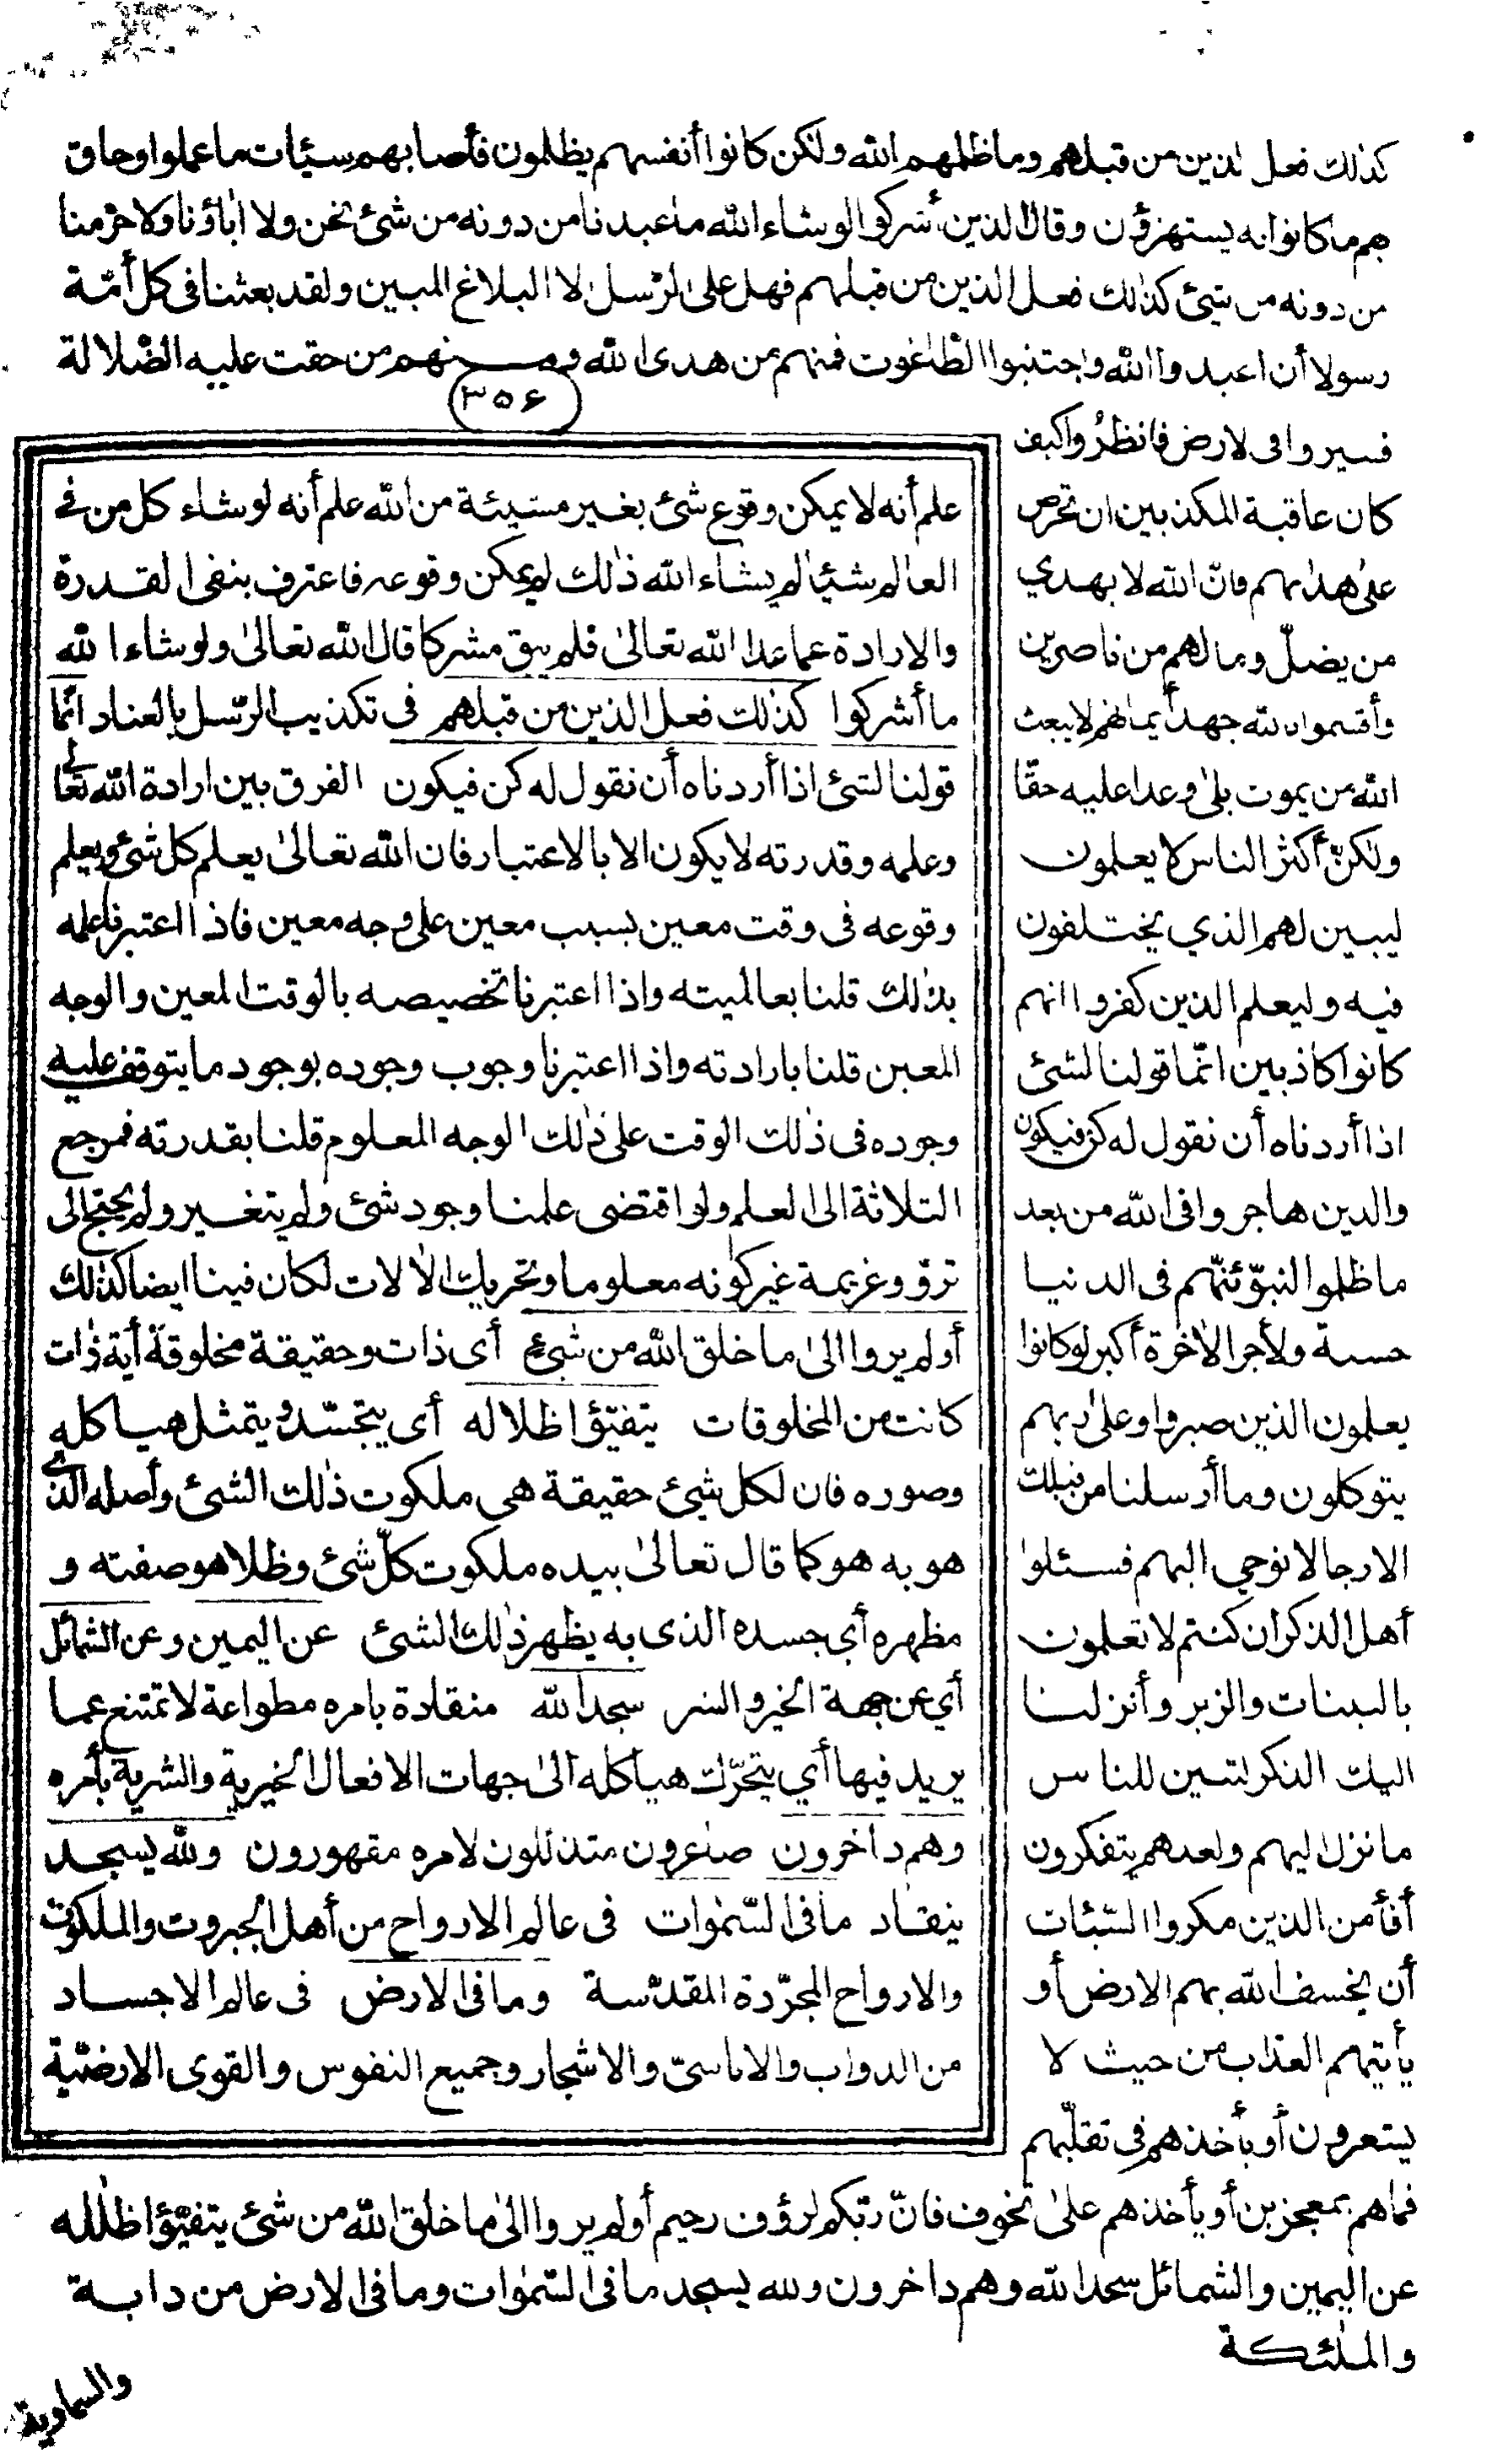 كذلك فعل الذين من قبلهم وما ظلمهم الله ولكن كانوا أنفسهم يظلمون فأصابهم سيئات ما عملوا وحاق
بهم ما كانوا به يستهزؤن وقال الذين أشركوا لو شاء الله ما عبدنا من دونه من شئ نحن ولا اباؤنا ولا حرّمنا
من دونه من شئ كذلك فعل الذين من قبلهم فهل على الرّسل الا البلاغ المبين ولقد بعثنا فى كل أمّة
رسولا أن اعبدوا الله واجتنبوا الطّاغوت فمنهم من هدى الله ومنهم من حقت عليه الضّلالة
٣٥۶
فسيروا فى لارض فانظرُوا كيف
كان عاقبة المكذبين ان تحرص
على هدٰىهم فانّ الله لا يهدي
من يضلّ وما لهم من ناصرين
وأقسموا بالله جهد أيمانهم لا يبعث
الله من يموت بلىٰ وعدا عليه حقّا
ولكنّ أكثر الناس لا يعلمون
ليبين لهم الذي يختلفون
فيه وليعلم الذين كفروا انهم
كانوا كاذبين انّما قولنا لشئ
اذا أردناه أن نقول له كن فيكون
والذين هاجروا فى الله من بعد
ما ظلموا لنبوّئنّهم فى الدنيا
حسنة ولأجر الاٰخرة أكبر لو كانوا
يعلمون الذين صبروا وعلىٰ ربهم
يتوكلون وما أرسلنا من قبلك
الا رجالا نوحي اليهم فسئلوا
أهل الذكر ان كنتم لا تعلمون
بالبينات والزبر وأنزلنا
اليك الذكر لتبين للناس
ما نزل اليهم ولعلهم يتفكرون
أفأمن الذين مكروا السّيئات
أن يخسف الله بهم الارض أو
يأتيهم العذاب من حيث لا
يشعرون أو يأخذهم فى تقلّبهم
فما هم بمعجزين أو يأخذهم علىٰ تخوف فانّ ربّكم لرؤف رحيم أولم يروا الىٰ ما خلق الله من شئ يتفيّؤا ظلٰله
عن اليمين والشمائل سجدا لله وهم داخرون ولله يسجد ما فى السّمٰوات وما فى الارض من دابة
والملٰئكة
علم أنه لا يمكن وقوع شئ بغير مشيئة من الله علم أنه لو شاء كل من فى
العالم شيئا لم يشاء الله ذلك لم يمكن وقوعه فاعترف بنفى القدرة
والارادة عما عدا الله تعالىٰ فلم يبق مشركا قال الله تعالىٰ ولو شاء الله
ما أشركوا كذلك فعل الذين من قبلهم فى تكذيب الرّسل بالعناد انّما
قولنا لشئ اذا أردناه أن نقول له كن فيكون الفرق بين ارادة الله تعالى
وعلمه وقدرته لا يكون الا بالاعتبار فان الله تعالىٰ يعلم كل شئ ويعلم
وقوعه فى وقت معين بسبب معين على وجه معين فاذا اعتبرنا علمه
بذلك قلنا بعالميته واذا اعتبرنا تخصيصه بالوقت المعين والوجه
المعين قلنا بارادته واذا اعتبرنا وجوب وجوده بوجود ما يتوقف عليه
وجوده فى ذلك الوقت على ذلك الوجه المعلوم قلنا بقدرته فمرجع
الثلاثة الى العلم ولو اقتضى علمنا وجود شئ ولم يتغير ولم يحتج الى
تروّ وعزيمة غير كونه معلوما وتحريك الاٰلات لكان فينا ايضا كذلك
أولم يروا الىٰ ما خلق الله من شئ أى ذات وحقيقة مخلوقة أية ذٰات
كانت من المخلوقات يتفيّؤا ظلاله أى يتجسّد ويتمثل هياكله
وصوره فان لكل شئ حقيقة هى ملكوت ذلك الشئ وأصله الذى
هو به هو كما قال تعالىٰ بيده ملكوت كلّ شئ وظلا هو صفته و
مظهره أي جسده الذى به يظهر ذلك الشئ عن اليمين وعن الشمائل
أي عن جهة الخير والشر سجدا لله منقادة بامره مطواعة لا تمتنع عما
يريد فيها أي يتحرّك هياكله الىٰ جهات الافعال الخيرية والشرية بأمره
وهم داخرون صٰاغرون متذللون لامره مقهورون ولله يسجد
ينقاد ما فى السّمٰوات فى عالم الارواح من أهل الجبروت والملكوت
والارواح المجرّدة المقدّسة وما فى الارض فى عالم الاجساد
من الدواب والاناسىّ والاشجار وجميع النفوس والقوى الارضيّة
والسماوية